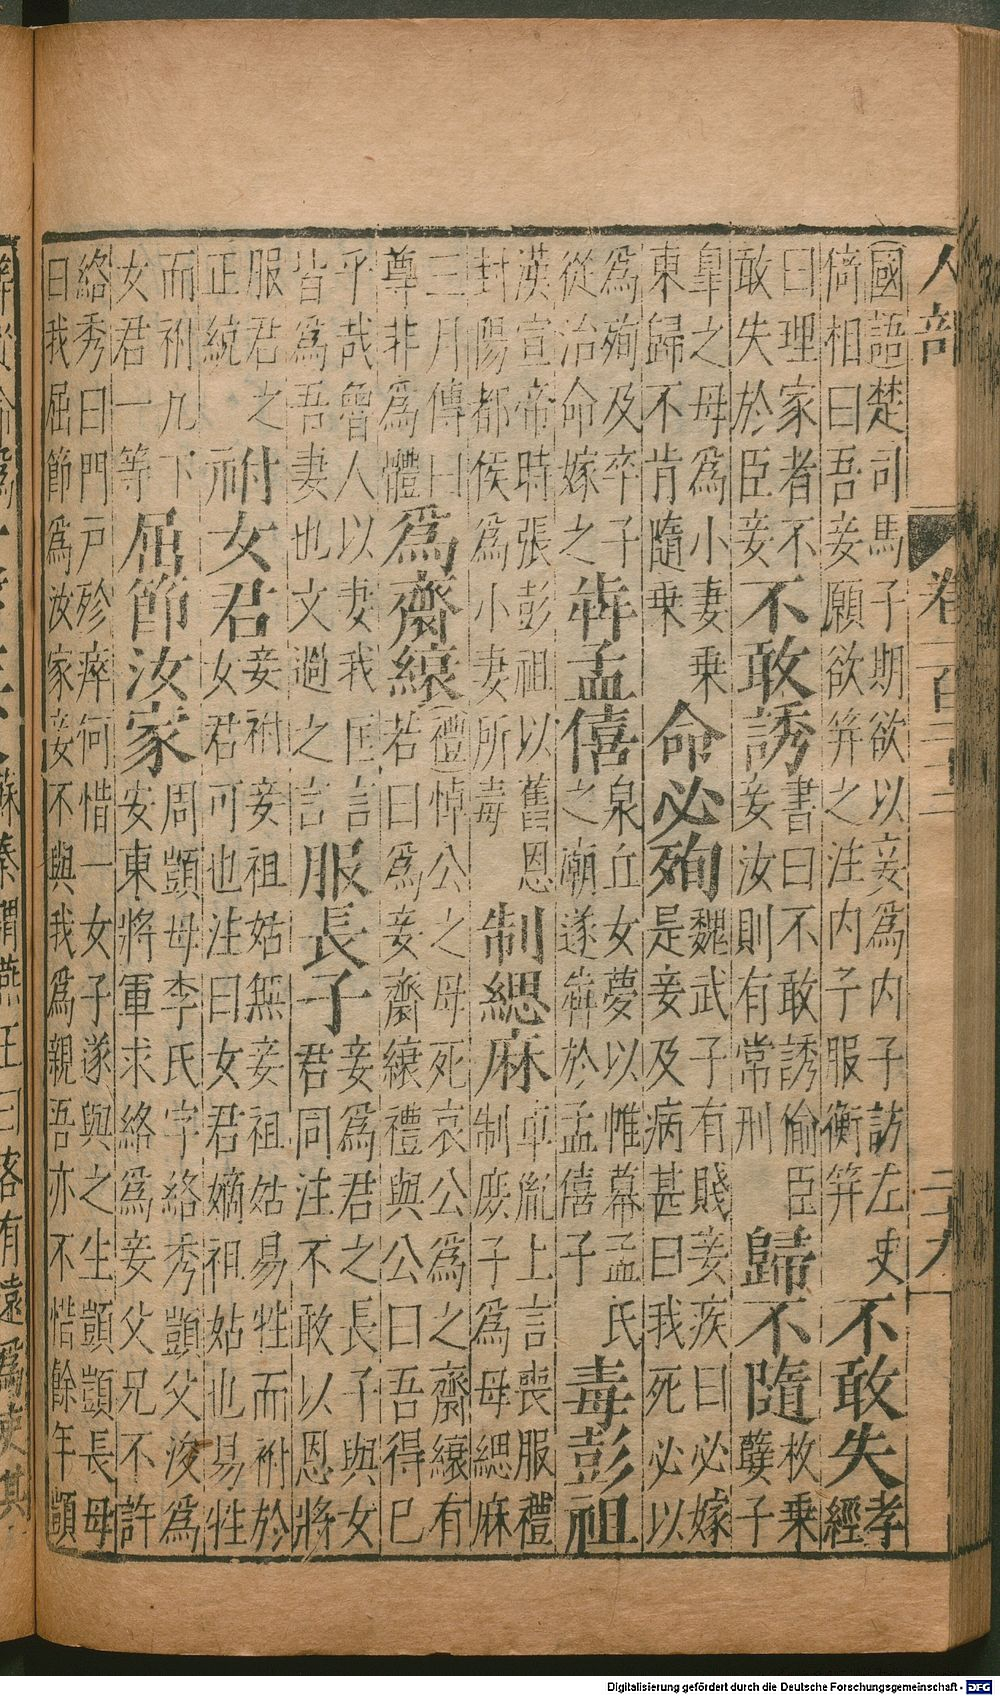 人部
卷
國語楚司馬子期欲以妾為内子訪左史
倚相曰吾妾願欲笄之注内子服衡笄
不敢失
孝
經
曰理家者不
敢失於臣妾
不敢誘
書曰不敢誘偷臣
妾汝則有常刑
歸不隨
枚乗
孽子
皐之母為小妻乗
東歸不肯隨乗
命必殉
魏武子有賤妾疾曰必嫁
是妾及病甚曰我死必以
為殉及卒子
從治命嫁之
犇孟僖
泉丘女夢以惟幕孟氏
之廟遂犇於孟僖子
毒彭祖
漢宣帝時張彭祖以舊恩
封陽都侯為小妻所毒
制緦麻
卓胤上言喪服禮
制庻子為母緦麻
三月傳曰
尊非為體
為齋縗
禮悼公之母死哀公為之齋縗有
若曰為妾齋縗禮與公曰吾得已
乎哉魯人以妻我匡言
皆為吾妻也文過之言
服長子
妾為君之長子與女
君同注不敢以恩將
服君之
正統
祔女君
妾祔妾祖姑無妾祖姑易牲而祔於
女君可也注曰女君嫡祖姑也易牲
而祔凡下
女君一等
屈節汝家
周顗母李氏字絡秀顗父浚為
安東將軍求絡為妾父兄不許
絡秀曰門戸殄瘁何惜一女子遂與之生顗顗長母
曰我屈節為汝家妾不與我為親吾亦不惜餘年顗
蘇秦謂燕王曰客有遠為吏其
Digitalisierung gefördert durch die Deutsche Forschungsgemeinschaft - DFG